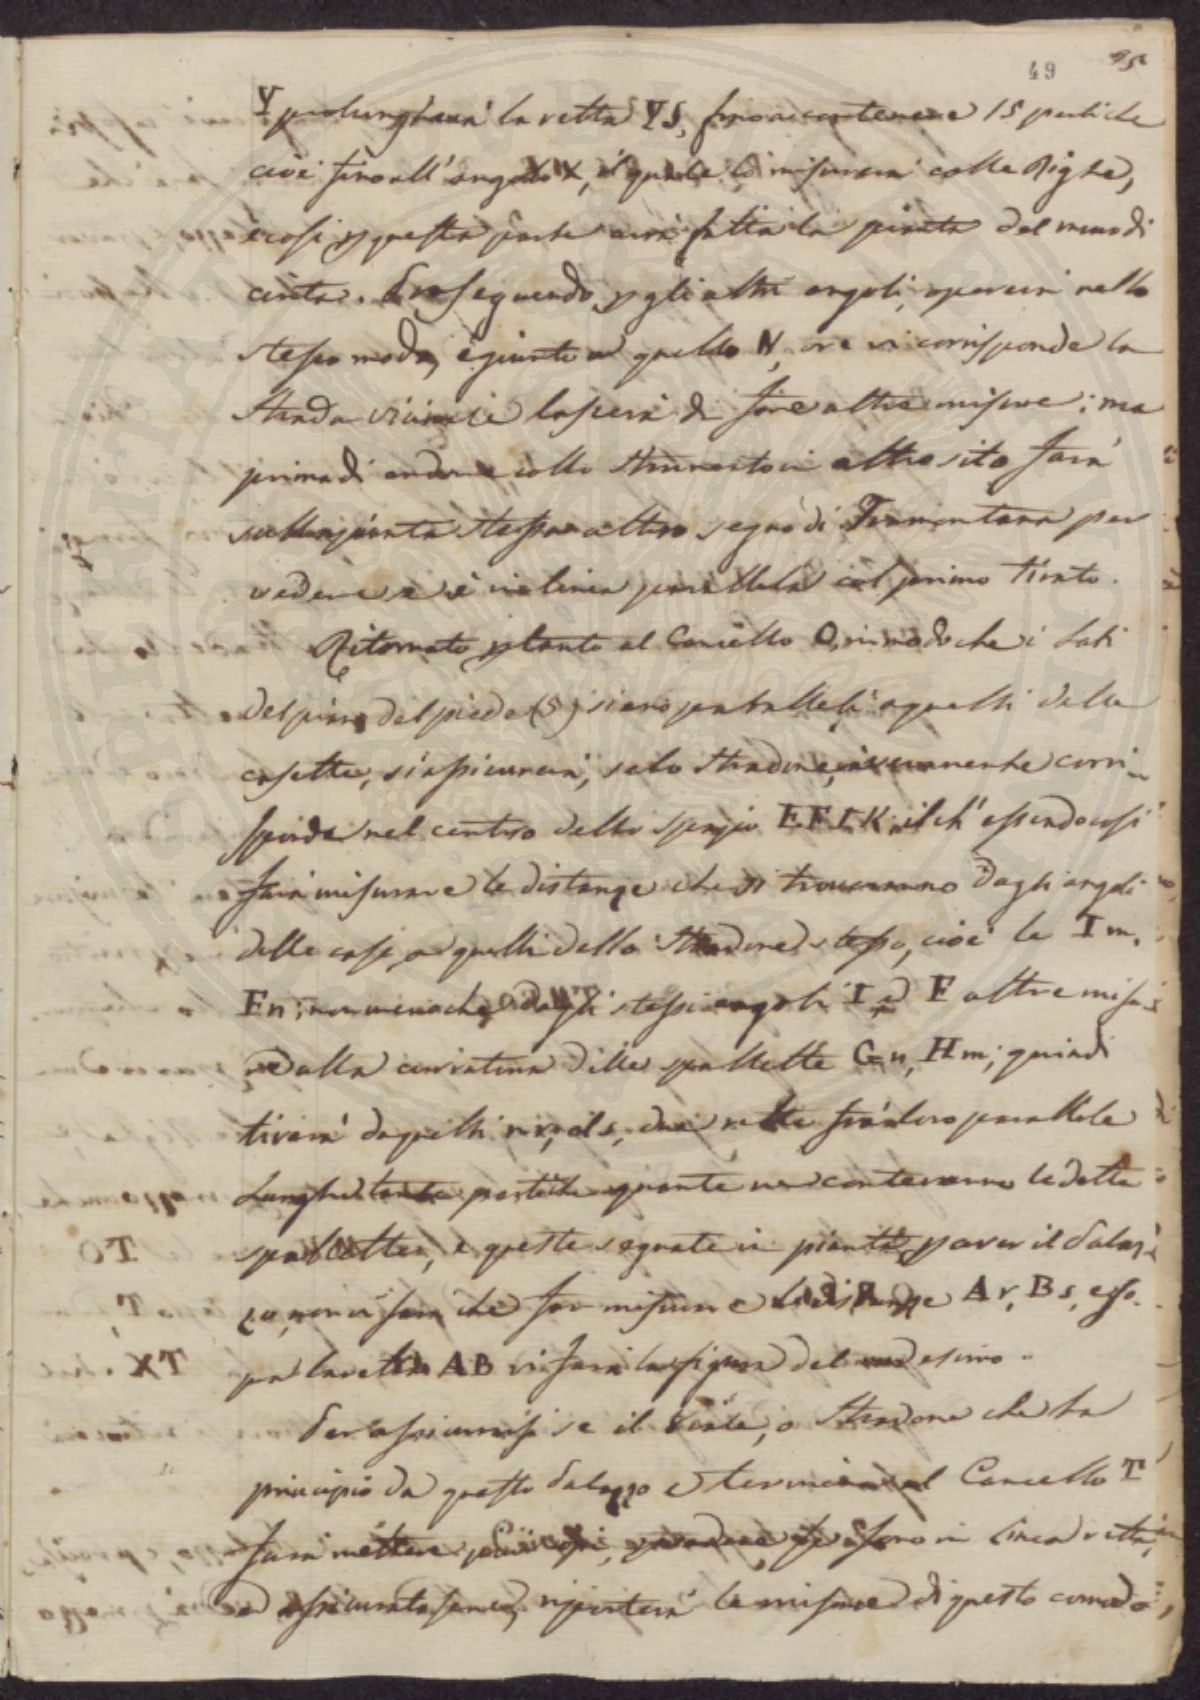 49
Y prolungherà la retta YS, fino a contenere 15 pertiche
cioè fino all'angolo X, il quale si misurerà colle Righe,
e così p questa parte avrà fatta la pianta del muro di
cinta. Proseguendo p gli altri angoli, opererà nello
stesso modo, e giunto a quello N, ove vi corrisponde la
Strada vicinale lascerà di fare altre misure; ma
prima di andare collo strumento in altro sito farà
sulla pianta stessa altro segno di Tramontana per
vedere se è in linea parallela col primo tirato.
Ritornato p tanto al Cancello O, in modo che i lati
del piano del piede (S) siano paralleli a quelli delle
casette, s'assicurerà, se lo stradone, sicuramente corri-
sponda nel centro dello spazio EFIK, il ch' essendo così
farà misurare le distanze che si troveranno dagli angoli
delle case, a quelli dello Stradone stesso, cioè le Im,
Fn; non meno che dagli stessi angoli I ad F altre misu-
re dalla curvatura delle spallette Gn, Hm; quindi
tirerà da quelli nr, ed s, due rette frà loro parallele
Lunghe tante pertiche quante ne conteranno le dette
spallette, e queste segnate in pianta, p aver il Palaz-
zo, non vi sarà che far misurare le distanze Ar, Bs, e so-
pra la retta AB vi farà la figura del medesimo.
Per assicurarsi se il Viale, o Stradone che ha
principio da questo Palazzo e termina al Cancello T
farà mettere più, per vedere se sono in linea retta,
ed assicuratosene, riporterà le misure di questo comodo,